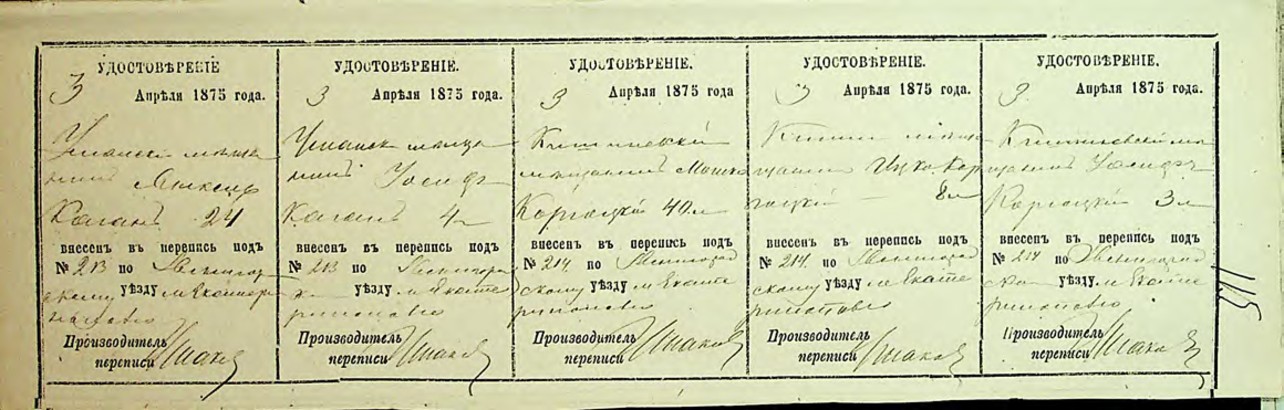 УДОСТОВѢРЕНІЕ
3 Апрѣля 1875 года.
Уманскій мѣща
нинъ
Каганъ 24
внесенъ въ перепись подъ
№ 213 по Звенигород
скому уѣзду м Екатери
нополью
Производитель
переписи
УДОСТОВѢРЕНІЕ.
3 Апрѣля 1875 года.
Уманск мѣща
нинъ Іосифъ
Каганъ 4 л
внесенъ въ перепись подъ
№ 213 по Звенигород
ск уѣзду м Екате
ринополью
Производитель
переписи
УДОСТОВѢРЕНІЕ.
3 Апрѣля 1875 года
Кишиневскій
мѣщанинъ Мошко
40 л
внесенъ въ перепись подъ
№ 214 по Звенигород
скому уѣзду м Екате
ринополью
Производитель
переписи
УДОСТОВѢРЕНІЕ.
3 Апрѣля 1875 года.
Кишин мѣ
щанинъ Ицко
8 л
внесенъ въ перепись подъ
№ 214 по Звенигород
скому уѣзду м Екате
ринополью
Производитель
переписи
УДОСТОВѢРЕНІЕ.
3 Апрѣля 1875 года.
Кишиневскій мѣ
щанинъ Іосифъ
3 л
внесенъ въ перепись подъ
№ 214 по Звенигород
ск уѣзду м Екате
ринополью
Производитель
переписи